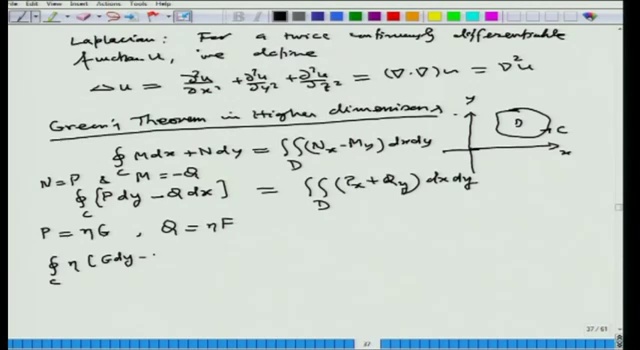 View Insert Actions Tools Help
Laplacian: For a twice continuously differentiable
function u, we define
Δu = ∂²u/∂x² + ∂²u/∂y² + ∂²u/∂z² = (∇·∇)u = ∇²u
Green's Theorem in Higher dimensions.
∮_C Mdx + Ndy = ∬_D (N_x - M_y) dxdy
y D C x
N = P & M = -Q
∮_C [Pdy - Qdx] = ∬_D (P_x + Q_y) dxdy
P = ηG , Q = ηF
∮_C η [Gdy -
37 / 61
37